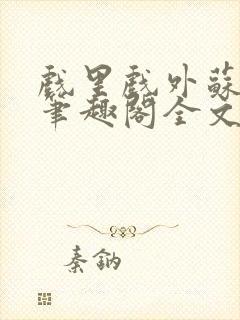 戲里戲外蘇
筆趣閣全文
秦鈉